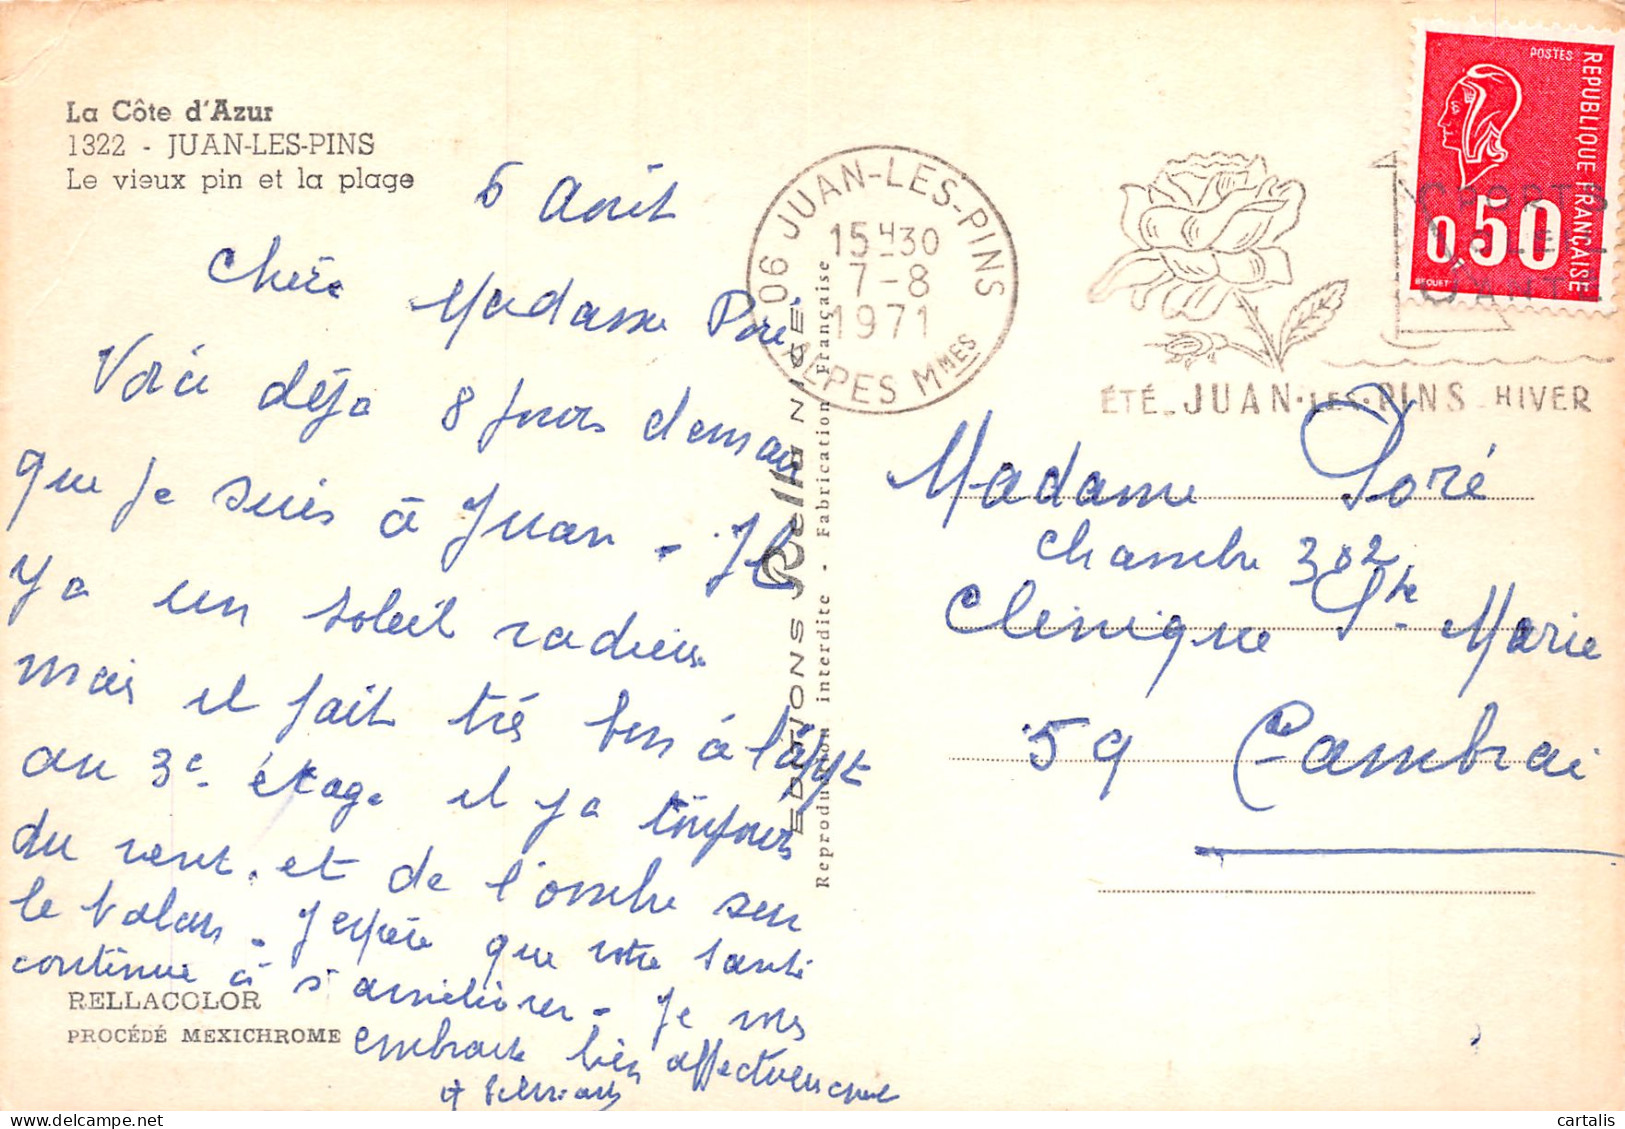 La Côte d'Azur
1322 - JUAN-LES-PINS
Le vieux pin et la plage
6 Août
Chère Madame Poré
Voici déjà 8 jours demain
que je suis à Juan - Il
y a un soleil radieux
mais il fait très bon à l'appt
au 3e étage il y a toujours
du vent. et de l'ombre sur
le balcon - J'espère que votre santé
continue à s'améliorer - Je vous
embrasse bien affectueusement
RELLACOLOR
PROCÉDÉ MEXICHROME
EDITIONS Rella NICE
Reproduction interdite - Fabrication Française
06 JUAN-LES-PINS
15H30
7-8
1971
ALPES Mmes
ÉTÉ - JUAN·LES·PINS - HIVER
SPORTS
SOLEIL
SANTÉ
POSTES
REPUBLIQUE FRANÇAISE
0,50
BEQUET
Madame Poré
Chambre 382
Clinique Ste Marie
59 Cambrai
cartalis